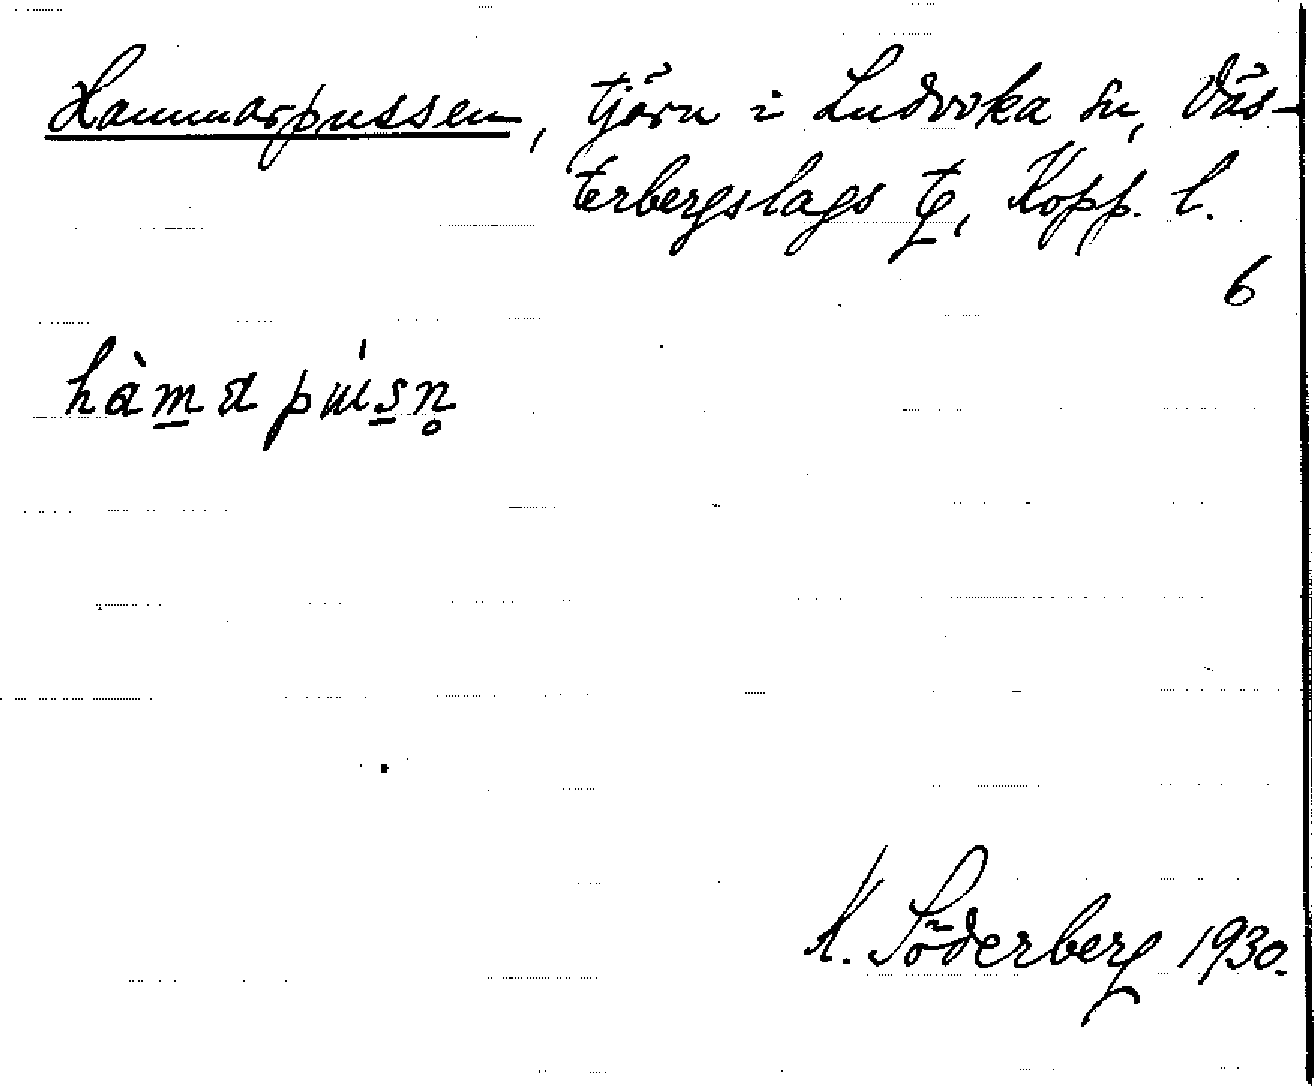 Hammarpussen, tjärn i Ludvika sn, Väs-
terbergslags tg, Kopp. l.
6
K. Söderberg 1930.